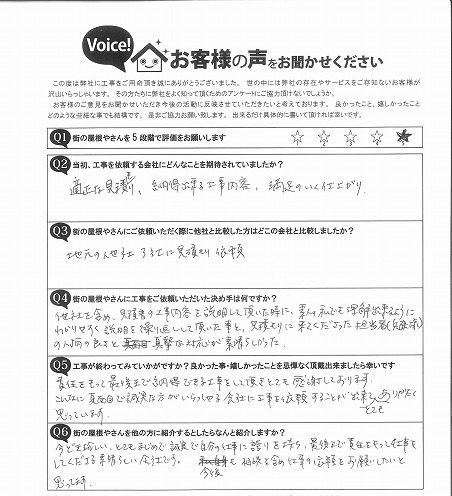 Voice! お客様の声をお聞かせください
この度は弊社に工事をご用命頂き誠にありがとうございました。世の中には弊社の存在やサービスをご存知ないお客様が
沢山いらっしゃいます。その方たちに弊社をよく知って頂くためのアンケートにご協力頂けないでしょうか。
お客様のご意見をお聞かせいただき今後の活動に反映させていただきたいと考えております。良かったこと、嬉しかったこと
どのような些細な事でも結構です。是非ご協力お願い致します。出来るだけ具体的に書いて頂ければ幸いです。
Q1 街の屋根やさんを5段階で評価をお願いします
Q2 当初、工事を依頼する会社にどんなことを期待されていましたか?
適正な見積り、納得出来る工事内容、満足のいく仕上がり、
Q3 街の屋根やさんにご依頼いただく際に他社と比較した方はどこの会社と比較しましたか?
地元の他社 に見積もり依頼
Q4 街の屋根やさんに工事をご依頼いただいた決め手は何ですか?
他社を含め、見積書の工事内容を説明して頂いた時に、素人の私でも理解出来るように
わかりやすく説明を繰り返しして頂いた事と、見積もりに来てくださった担当者
の人柄の良さと 真摯な対応が素晴らしかった。
Q5 工事が終わってみていかがですか?良かった事・嬉しかったことを忌憚なく頂戴出来ましたら幸いです
責任をもって最後まで納得できる工事をして頂きとても感謝しております。
こんなに真面目で誠実な方がいらっしゃる会社に工事を依頼することが出来 とても ありがたく
思っています。
Q6 街の屋根やさんを他の方に紹介するとしたらなんと紹介しますか?
今どき珍しい、とてもまじめで誠実で自分の仕事に誇りを持ち、最後まで責任をもって仕事を
してくださる素晴らしい会社です。 今後も 相談を含め工事の依頼をお願いしたいと
思ってます。